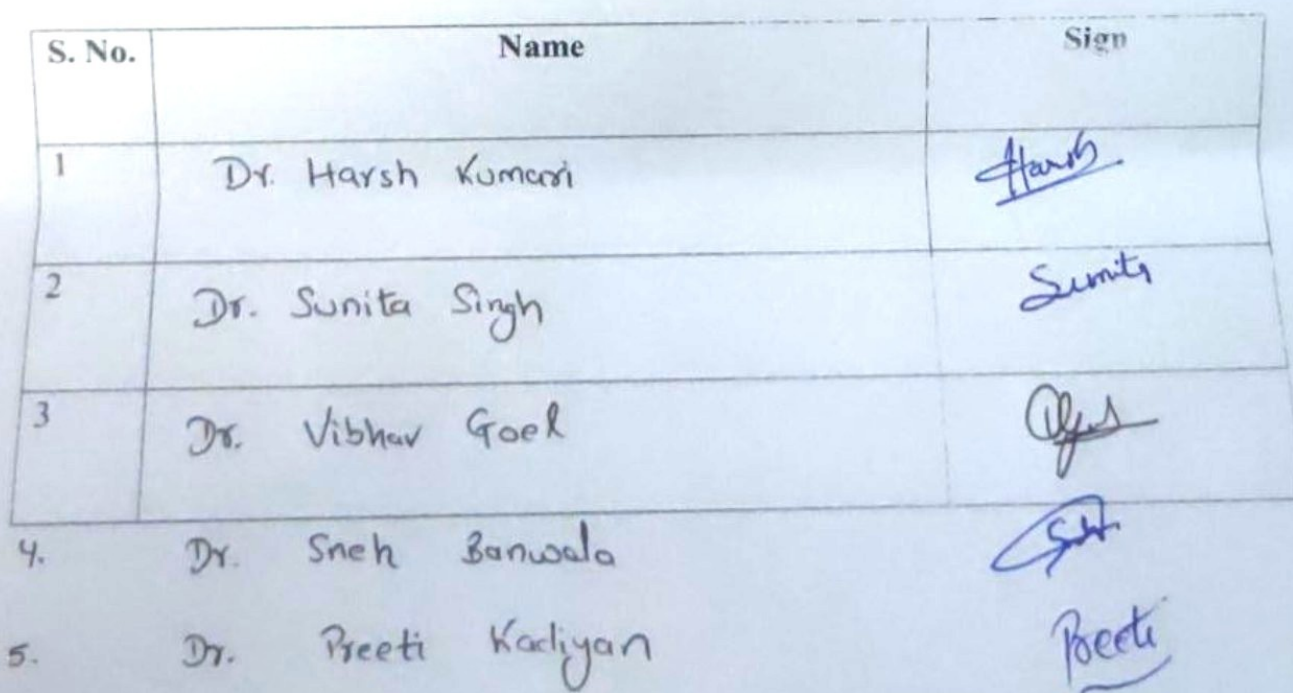 S. No. Name Sign
1 Dr. Harsh Kumari Harsh
2 Dr. Sunita Singh Sunita
3 Dr. Vibhav Goel
4. Dr. Sneh Banwala
5. Dr. Preeti Kadiyan Preeti